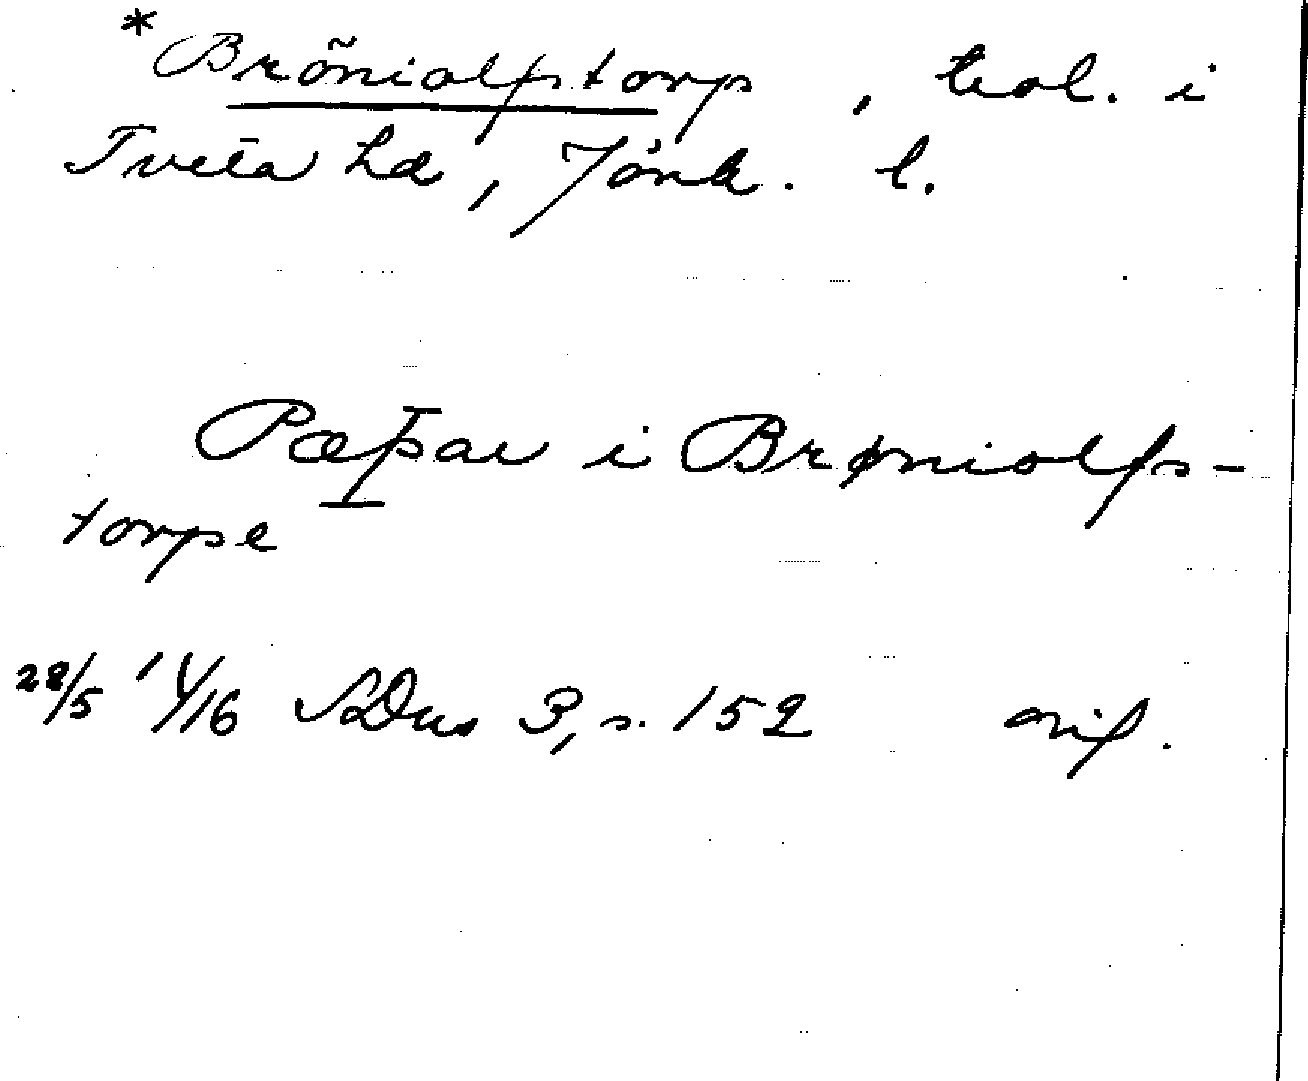 *Brõniolfstorp, trol. i
Tveta hd, Jönk. l.
Pæþar i Brøniolfs-
torpe
28/5 1416 SDns 3, s. 152 orig.